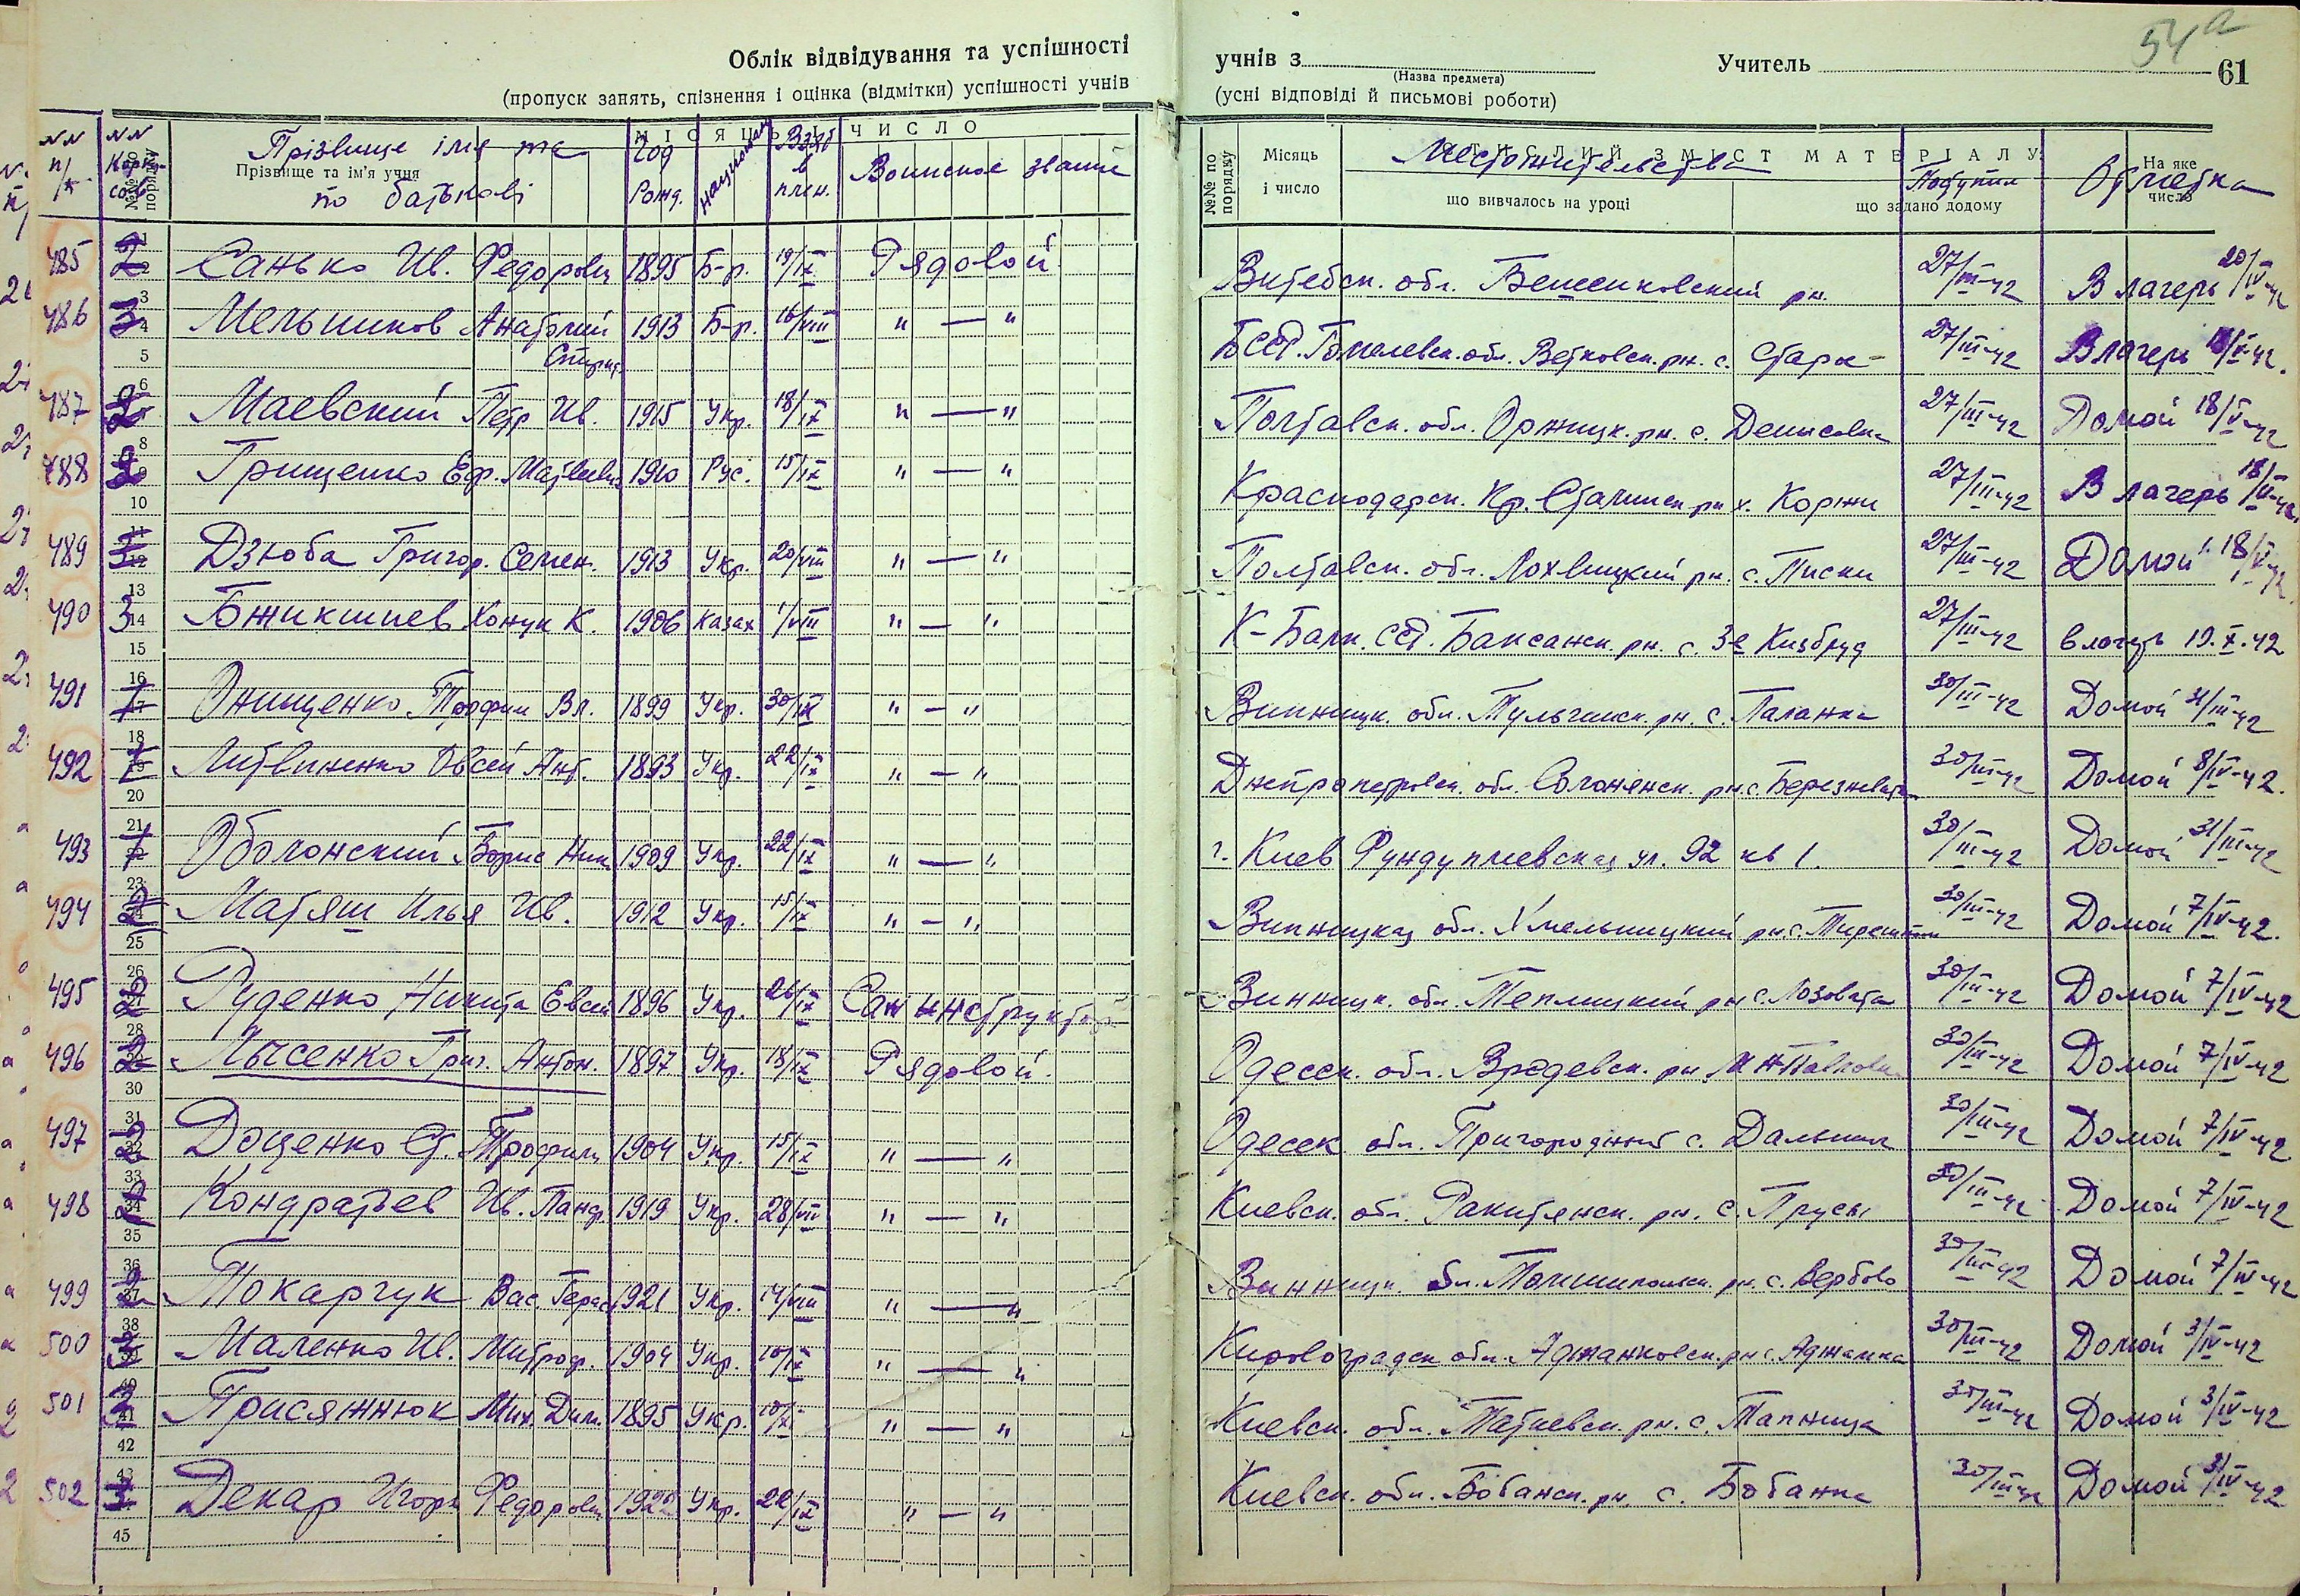 54а
Облік відвідування та успішності учнів з (Назва предмета) Учитель 61
(пропуск занять, спізнення і оцінка (відмітки) успішності учнів (усні відповіді й письмові роботи)
МІСЯЦЬ І ЧИСЛО
№№ п/п №№ Корпусов Прізвище імя та по батькові Год рожд. Национальн Взят в плен. Воинское звание Местожительства Поступил Отметка
№№ по порядку Прізвище та ім'я учня №№ по порядку Місяць і число СТИСЛИЙ ЗМІСТ МАТЕРІАЛУ: що вивчалось на уроці що задано додому На яке число
485 2 Санько Ив. Федорович 1895 Б-р. 19/IX Рядовой Витебск. обл. Бешенковский рн. 27/III-42 В лагерь 20/IV-42
486 3 Мельников Анатолий 1913 Б-р. 16/VIII " — " БССР. Гомелевск. обл. Ветковск. рн. с. 27/III-42 В лагерь
487 2 Маевский Петр Ив. 1915 Укр. 18/IX " — " Полтавск. обл. Оржицк. рн. с. Денисовка 27/III-42 Домой 18/V-42
488 2 Грищенко Еф. Матвеевич 1910 Рус. 15/IX " — " Краснодарск. Кр. Сталинск рн х. Коржи 27/III-42 В лагерь
489 3 Дзюба Григор. Семен. 1913 Укр. 20/VIII " — " Полтавск. обл. Лохвицкий рн. с. Писки 27/III-42 Домой
490 3 Бжикшиев К. 1906 Казах 1/VIII " — " К-Балк. ССР. Баксанск. рн. с. 3е Кизбруд 27/III-42 в лагерь 19.X.42
491 1 Онищенко Трофим Вл. 1899 Укр. 30/IX " — " Винницк. обл. Тульчинск. рн. с. Паланка 30/III-42 Домой 31/III-42
492 1 Литвиненко Овсей Ант. 1893 Укр. 22/IX " — " Днепропетровск. обл. Солонянск. рн. с. 30/III-42 Домой 8/IV-42.
493 1 Оболонский Борис Ник 1909 Укр. 22/IX " — " г. Киев Фундуклиевская ул. 92 кв 1. 30/III-42 Домой 31/III-42
494 2 Матяш Илья Ив. 1912 Укр. 15/IX " — " Винницкая обл. Хмельницкий рн. с. 30/III-42 Домой 7/IV-42.
495 2 Руденко Никита Евсей 1896 Укр. 26/IX Сан инструктор Винницк. обл. Теплицкий рн с. Лозовата 30/III-42 Домой 7/IV-42
496 2 Лысенко Григ. Антон. 1897 Укр. 18/IX Рядовой. Одесск. обл. Врадевск. рн. 30/III-42 Домой 7/IV-42
497 2 Доценко Ст. Трофим 1904 Укр. 15/IX " — " Одесск обл. Пригородний с. Дальник 30/III-42 Домой 7/IV-42
498 2 Кондратьев Ив. Панф. 1919 Укр. 28/VII " — " Киевск. обл. Ракитянск. рн. с. Прусы 30/III-42 Домой 7/IV-42
499 2 Токарчук Вас. Герас 1921 Укр. 14/VIII " — " Винницк обл. Томашпольск. рн. с. Вербово 30/III-42 Домой 7/IV-42
500 3 Маленко Ив. Митроф. 1904 Укр. 10/IX " — " Кировоградск обл. Аджамковск. рн с. Аджамка 30/III-42 Домой 3/IV-42
501 3 Присяжнюк Мих. Дим. 1895 Укр. " — " Киевск. обл. Татиевск. рн. с. Тапница 30/III-42 Домой 3/IV-42
502 3 Декар Игорь Федорович 1922 Укр. 22/IX " — " Киевск. обл. Бобанск. рн. с. Бобанка 30/III-42 Домой 3/IV-42
45